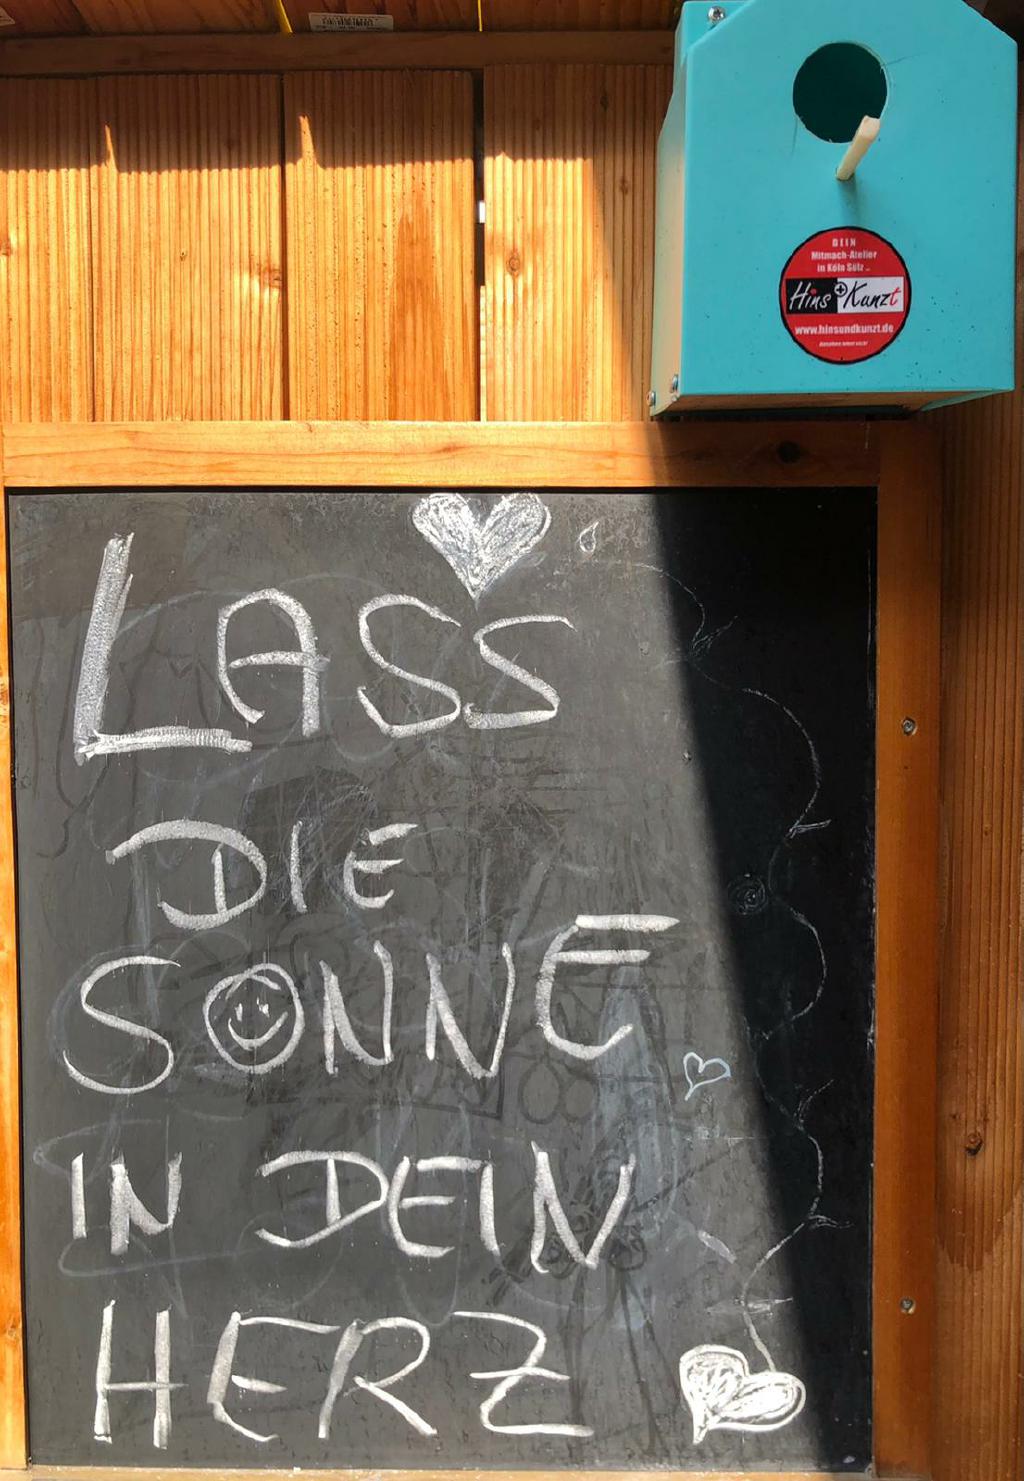 DEIN
Mitmach-Atelier
in Köln Sülz ...
Hins + Kunzt
www.hinsundkunzt.de
LASS
DIE
SONNE
IN DEIN
HERZ